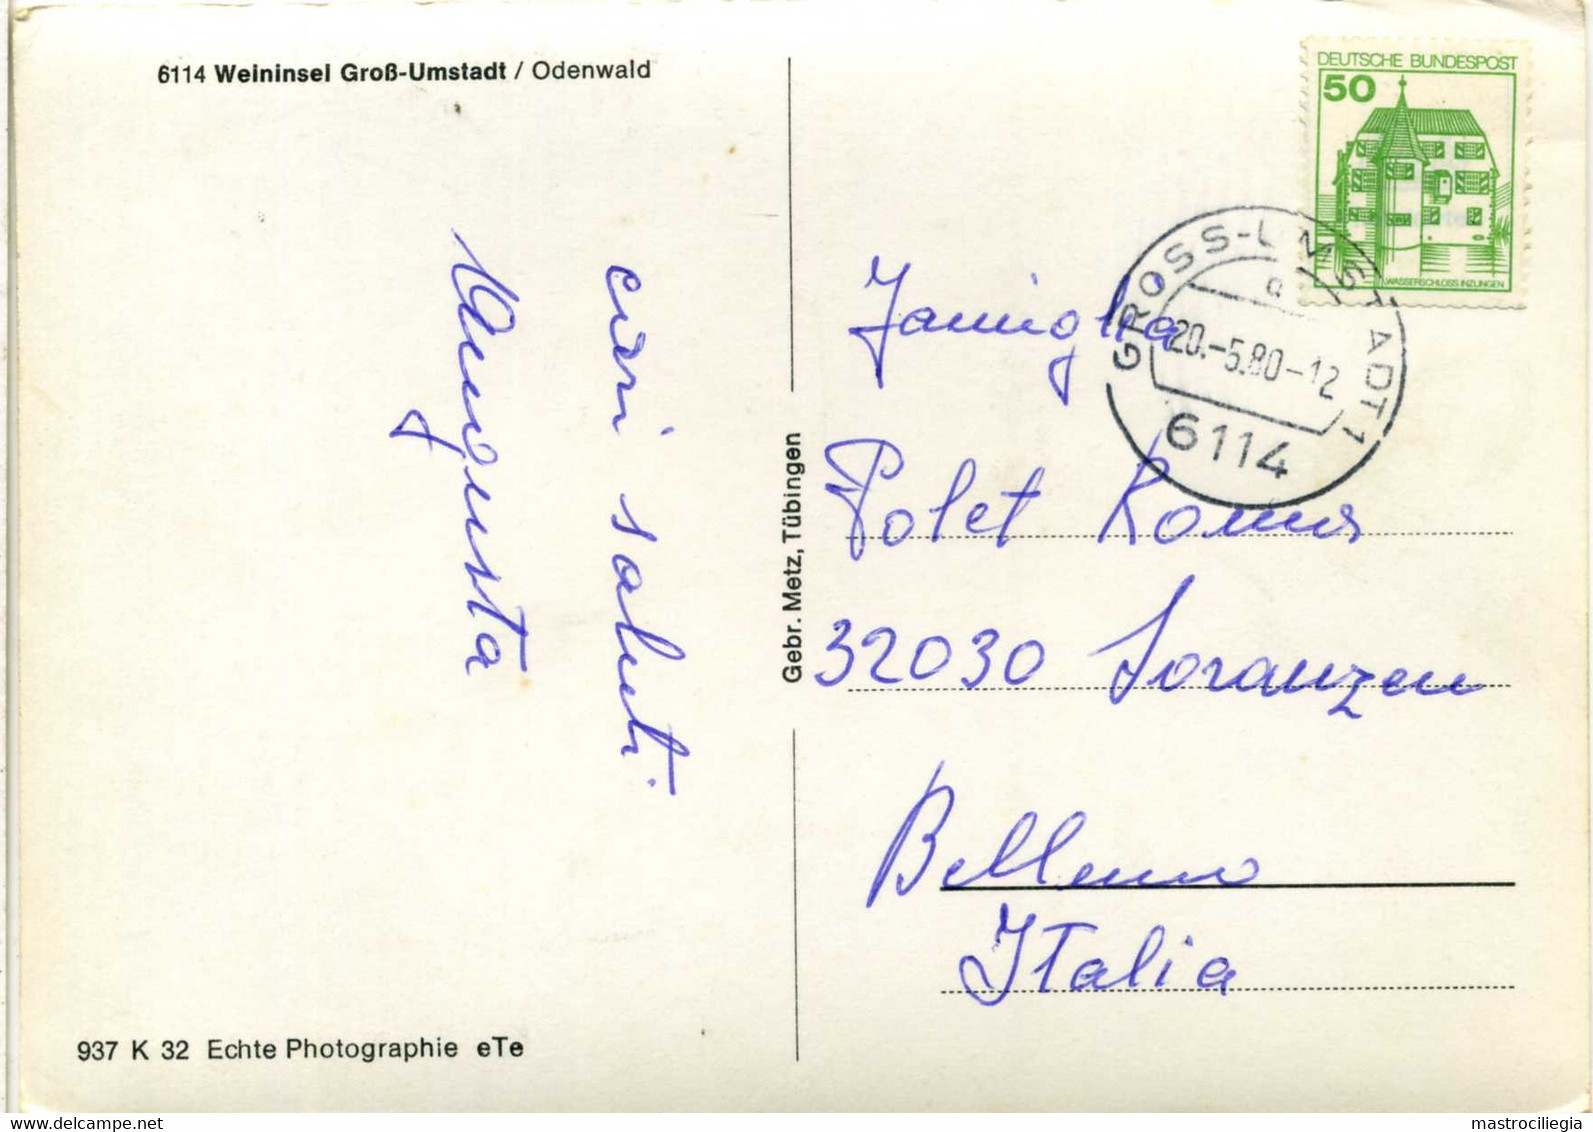 6114 Weininsel Groß-Umstadt / Odenwald
cari saluti
Augusta
937 K 32 Echte Photographie eTe
Gebr. Metz, Tübingen
DEUTSCHE BUNDESPOST
50
WASSERSCHLOSS INZLINGEN
GROSS-UMSTADT 1
a
20.-5.80-12
6114
Famiglia
Polet
32030 Soranzen
Belluno
Italia
www.delcampe.net
mastrociliegia